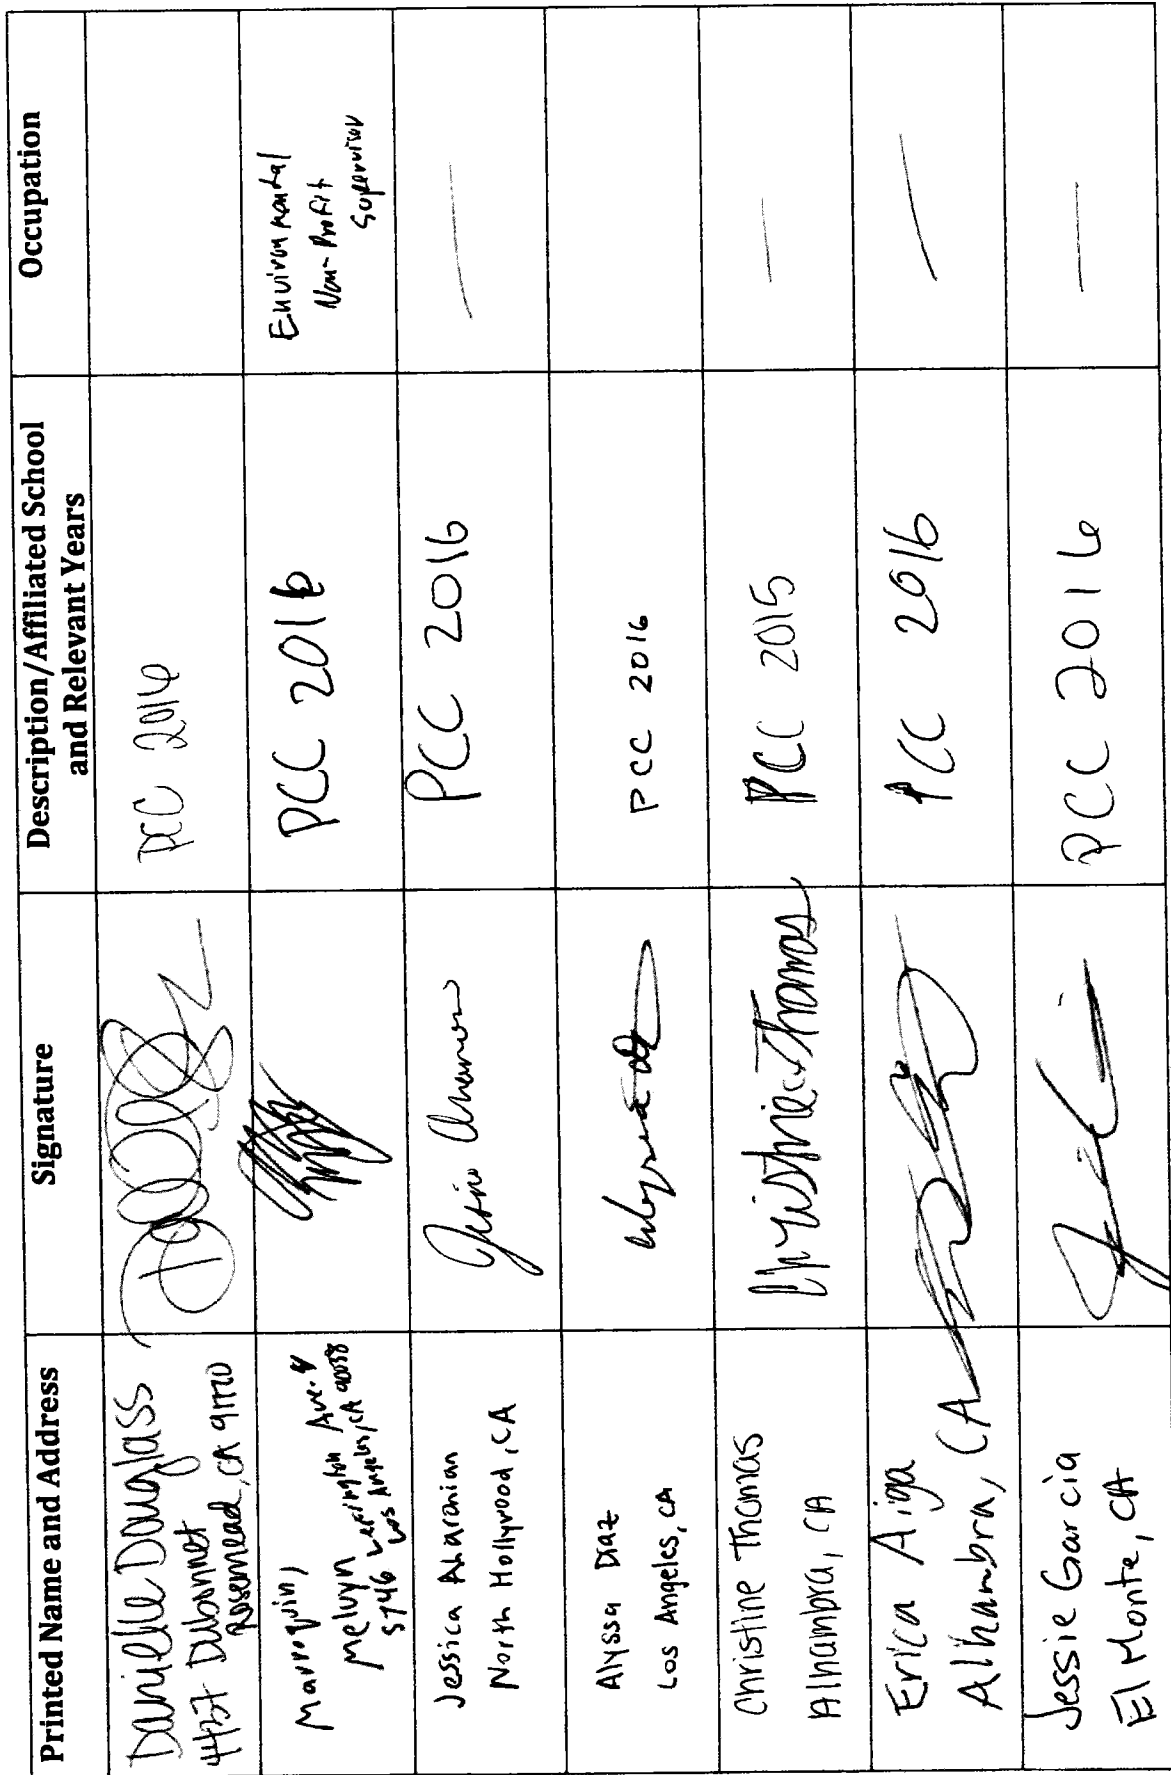 Printed Name and Address
Signature
Description/Affiliated School
and Relevant Years
Occupation
Danielle Douglass
Dubonnet
Rosemead, CA 91770
PCC 2016
Marroquin,
Melvyn
5746 Lexington Ave. 4
Los Angeles, CA 90038
PCC 2016
Environmental
Non-Profit
Supervisor
Jessica Aharonian
North Hollywood, CA
PCC 2016
Alyssa Diaz
Los Angeles, CA
PCC 2016
Christine Thomas
Alhambra, CA
Christine Thomas
PCC 2015
Erica Aiga
Alhambra, CA
PCC 2016
Jessie Garcia
El Monte, CA
PCC 2016